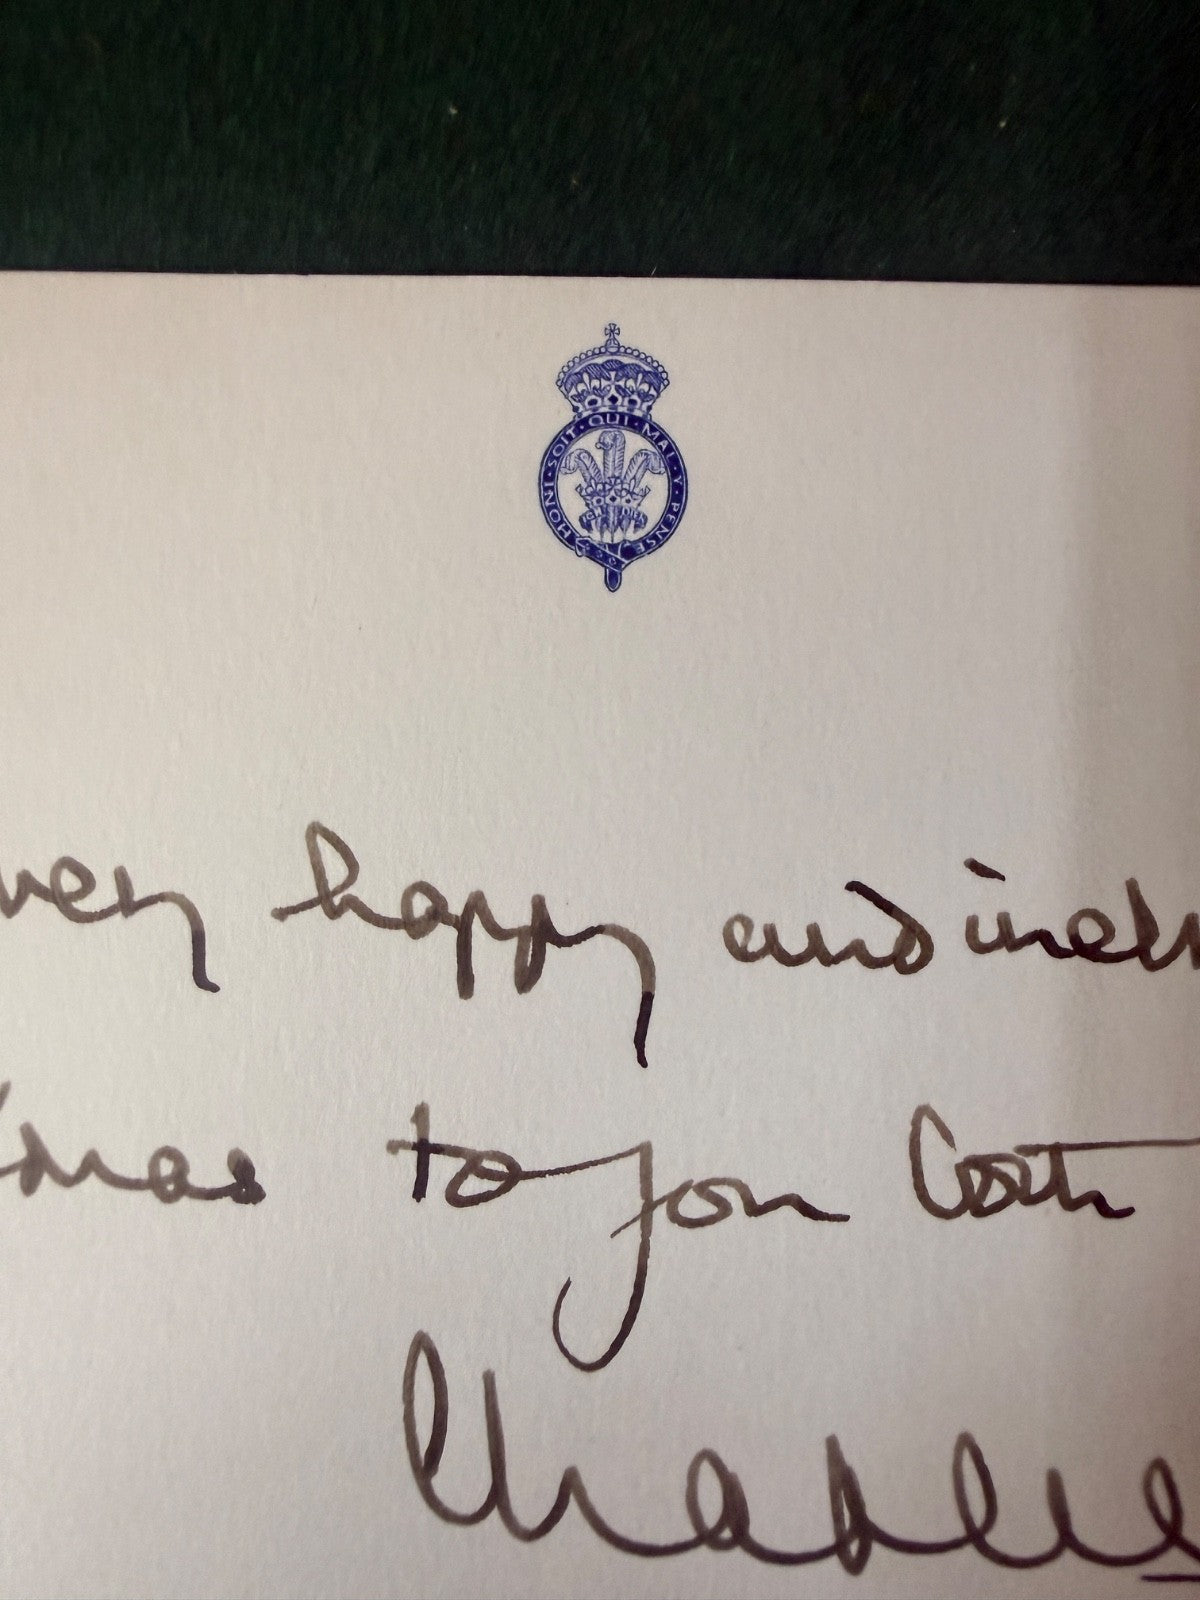 HONI·SOIT·QUI·MAL·Y·PENSE
ICH DIEN
very happy and
to you both
Charles